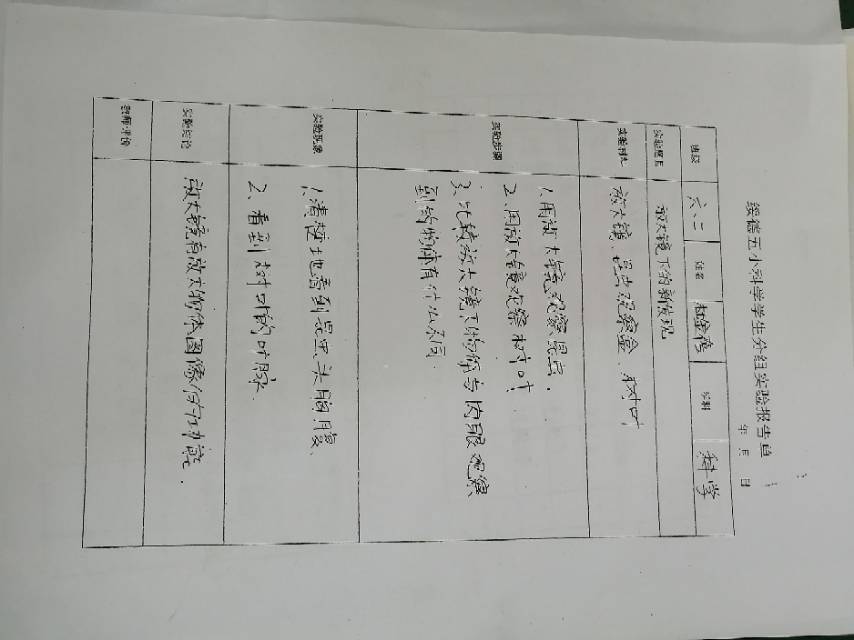 绥德五小科学学生分组实验报告单
年 月 日
班级 六、二 姓名 学科 科学
实验题目 放大镜下的新发现
实验材料 放大镜、昆虫观察盒、树叶
实验步骤 1.用放大镜观察昆虫.
2.用放大镜观察树叶
3.比较放大镜下物体与肉眼观察
到的物体有什么不同.
实验现象 1.清楚地看到昆虫头胸腹、
2、看到树叶的叶脉
实验结论 放大镜有放大物体图像的功能.
教师评价